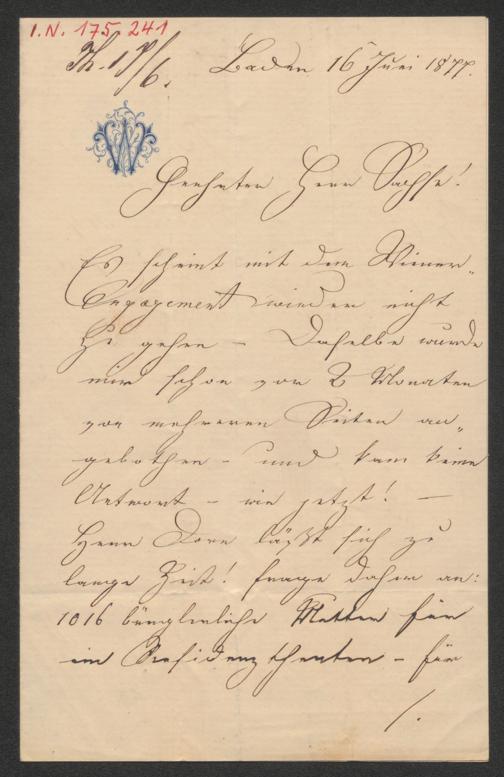 I.N. 175.241
Baden 16 Juni 1877.
W
Geehrter Herr Sachse!
Es scheint mit dem Wiener„
Engagement wieder nicht
zu gehen – Daselbe wurde
mir schon vor 2 Monaten
von mehreren Seiten an„
gebothen – und kam keine
Antwort – wie jetzt! –
Herr Dorn läßt sich zu
lange Zeit! frage daher an:
bürgerliche Mütter für
ein Residenztheater – für
/.